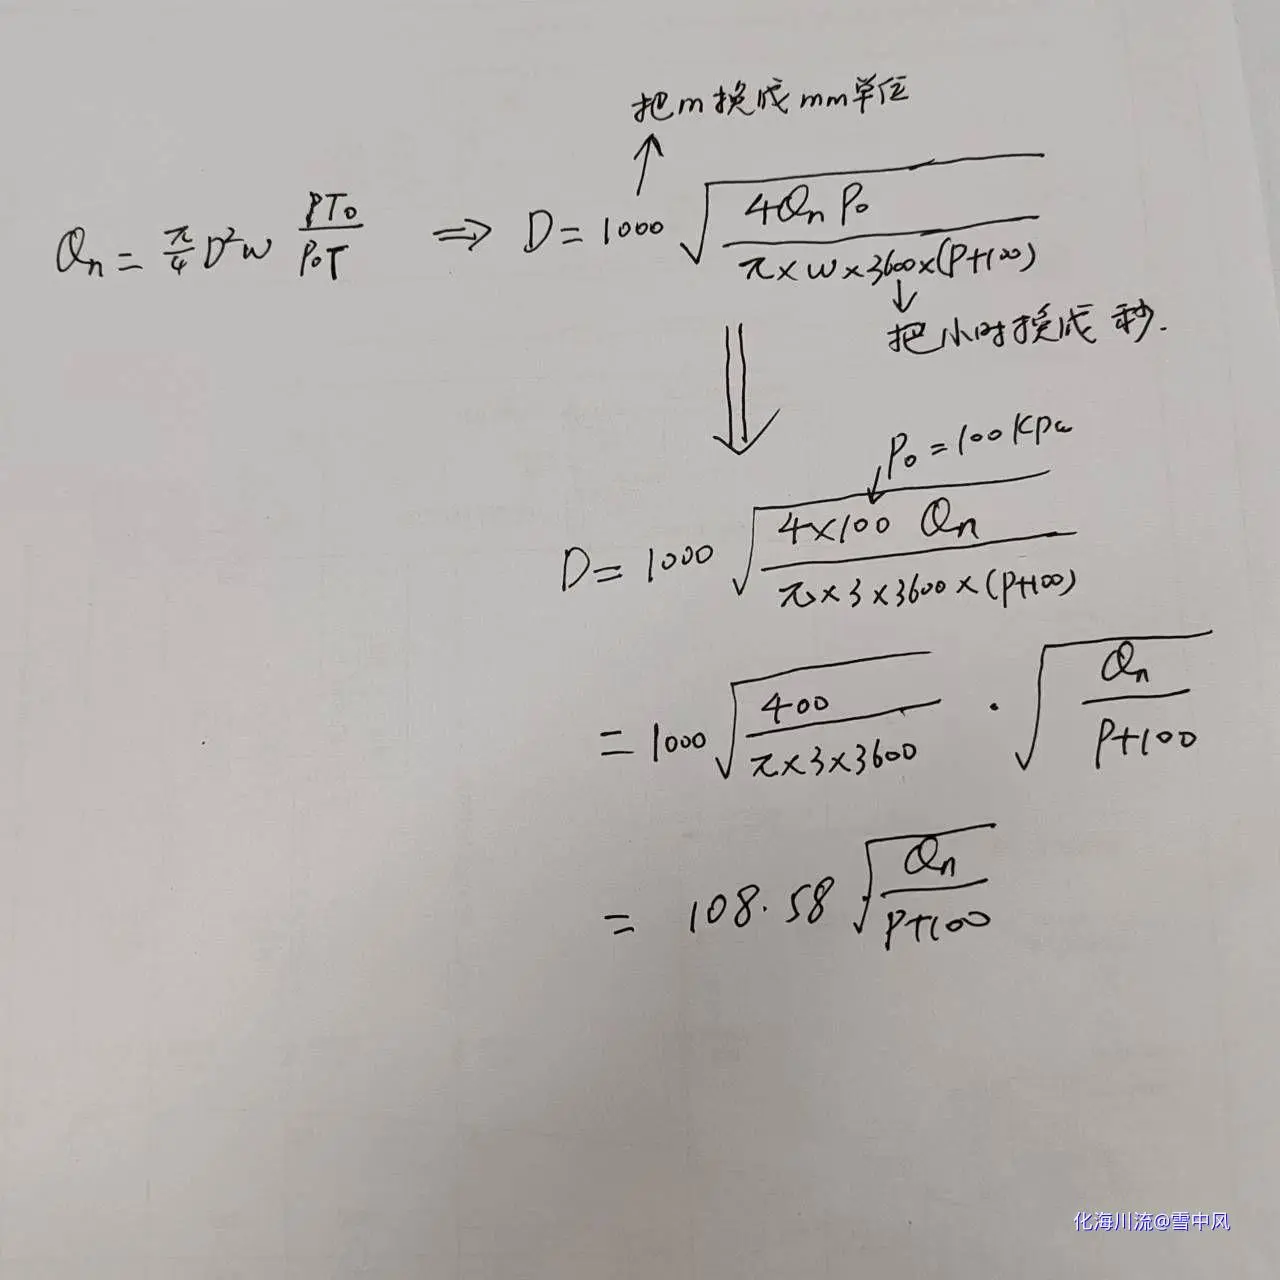 把m换成mm单位
Qn = π/4 D²w PT₀/P₀T ⇒ D = 1000 √(4Qn P₀ / π×w×3600×(P+100))
把小时换成秒.
P₀ = 100 Kpa
D = 1000 √(4×100 Qn / π×3×3600×(P+100))
= 1000 √(400 / π×3×3600) · √(Qn / P+100)
= 108.58 √(Qn / P+100)
化海川流@雪中风